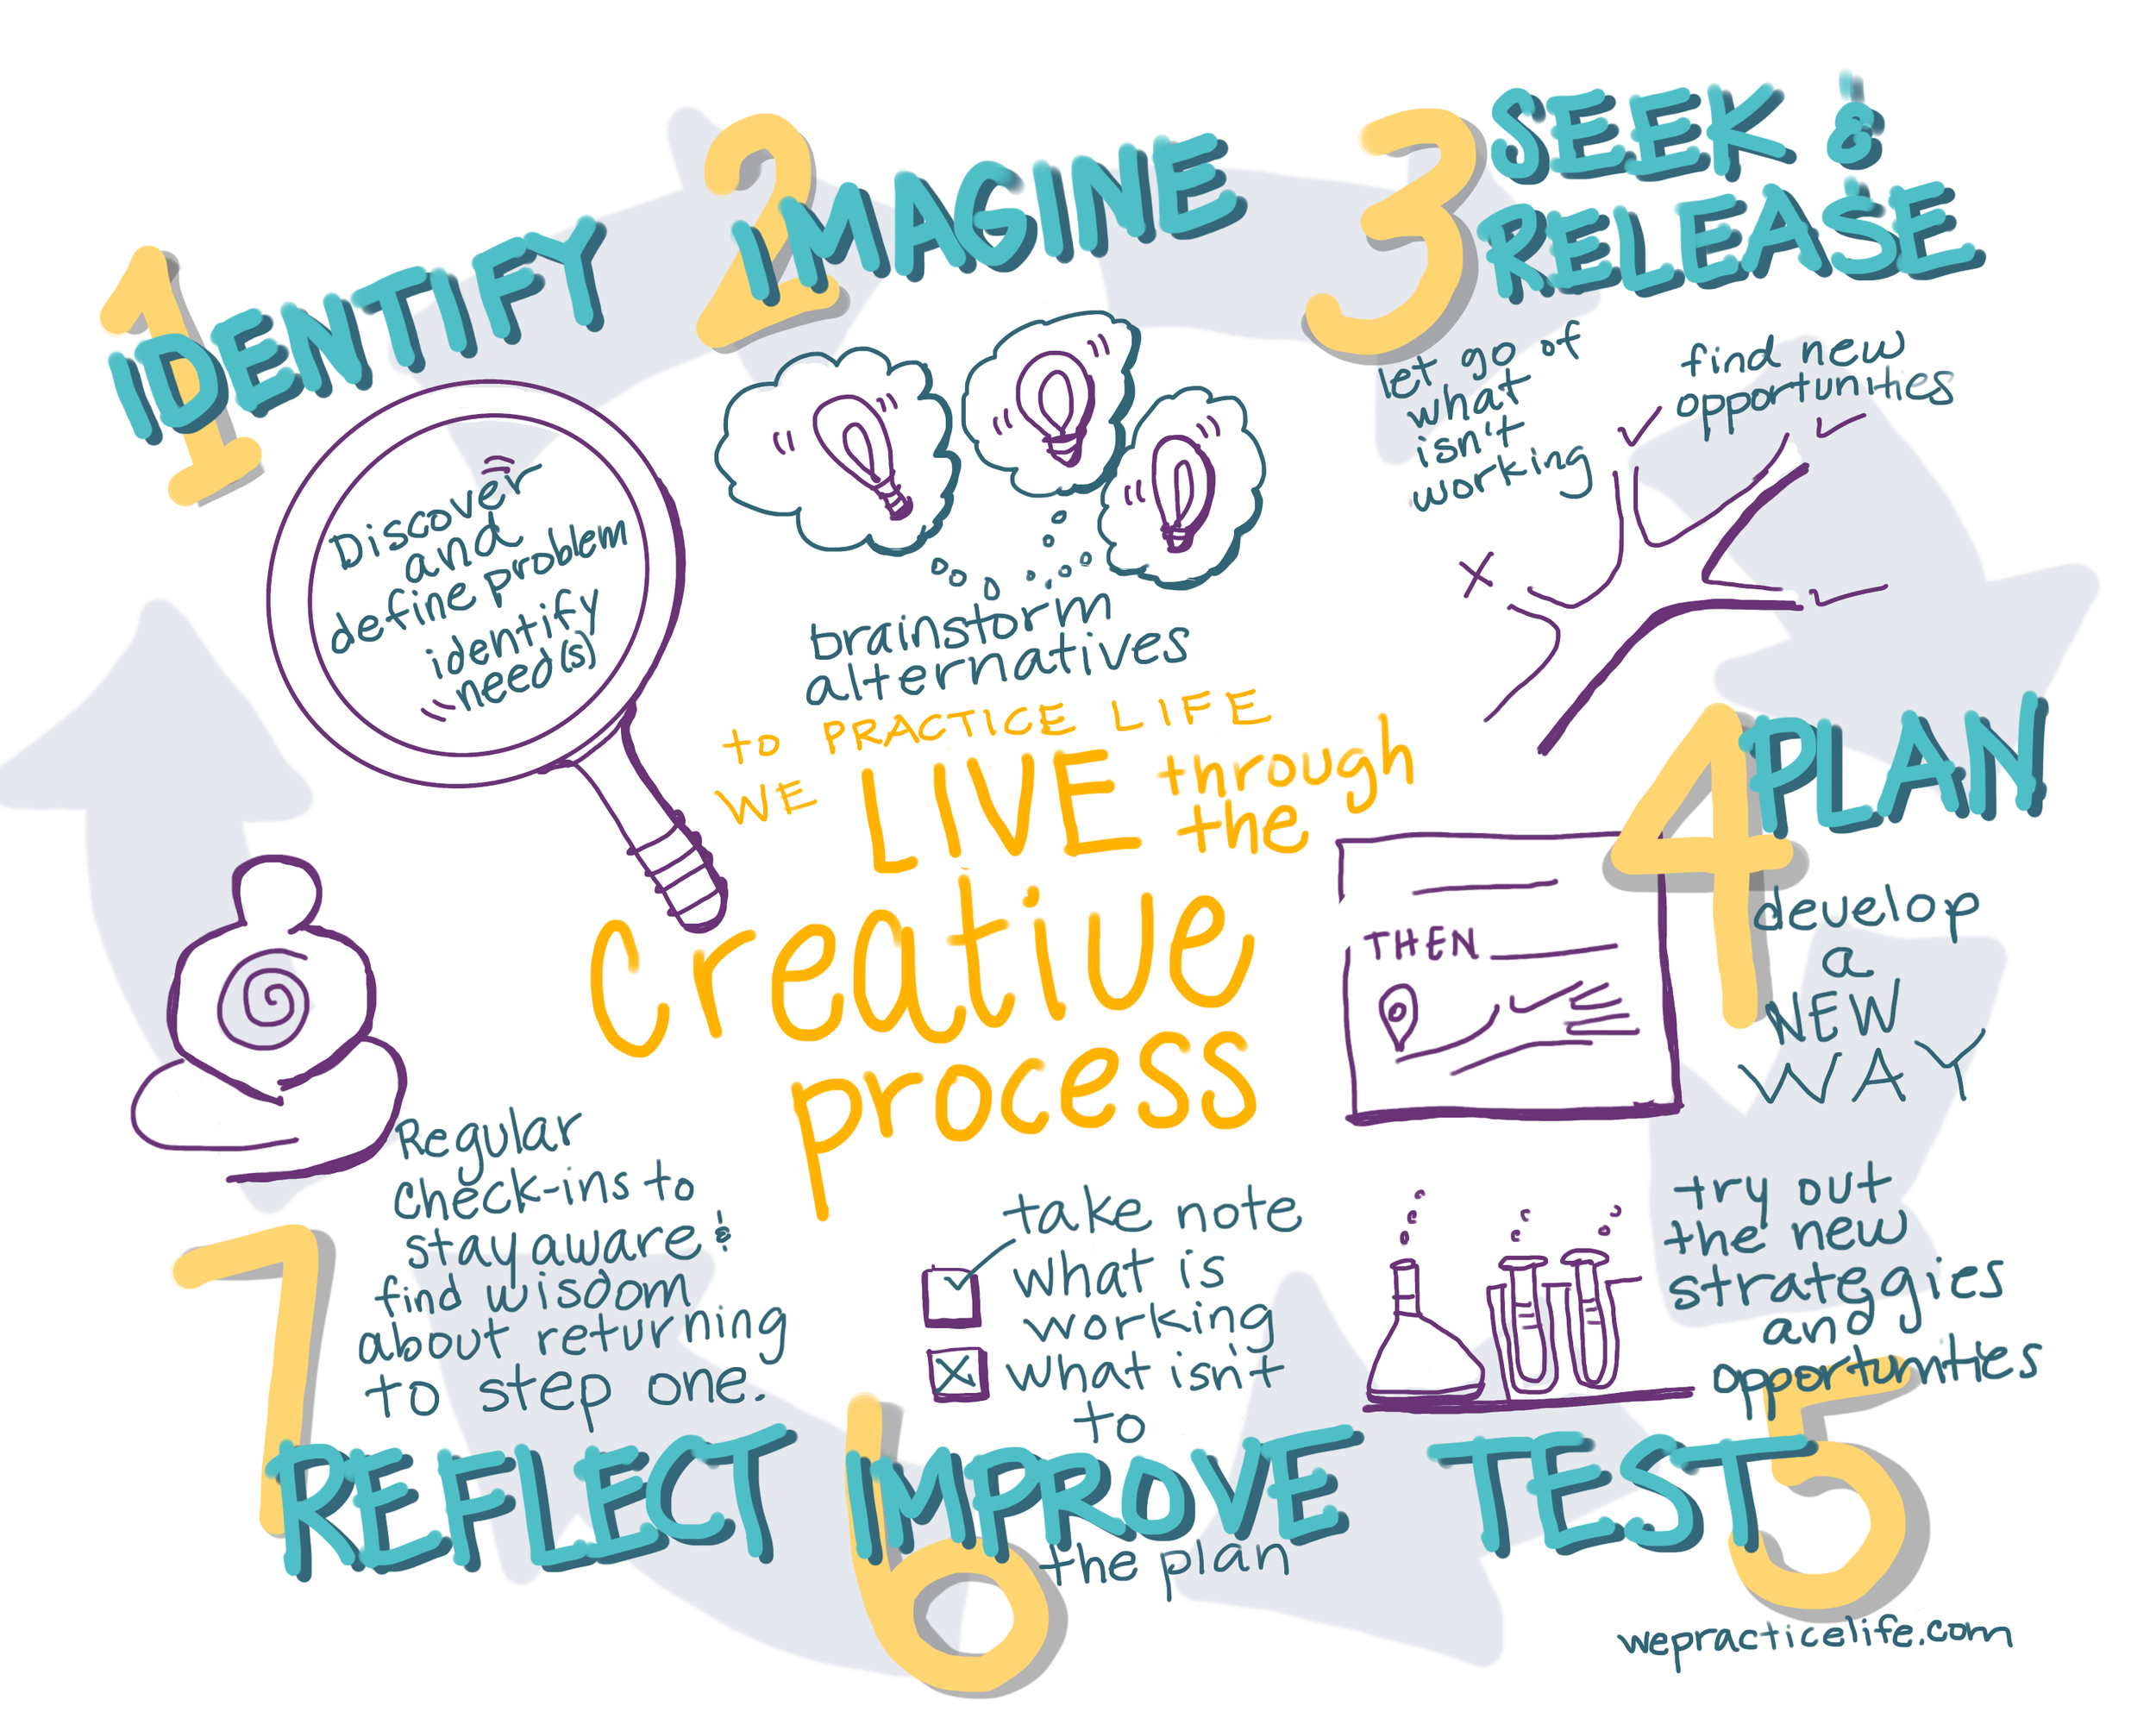 1
IDENTIFY
Discover
and
define problem
identify
need(s)
2
IMAGINE
brainstorm
alternatives
3
SEEK &
RELEASE
let go of
what
isn't
working
find new
opportunities
to PRACTICE LIFE
WE LIVE through
the
creative
process
4
PLAN
THEN
develop
a
NEW
WAY
try out
the new
strategies
and
opportunities
TEST
5
take note
what is
working
what isn't
to
6
IMPROVE
the plan
Regular
check-ins to
stay aware &
find wisdom
about returning
to step one.
7
REFLECT
wepracticelife.com